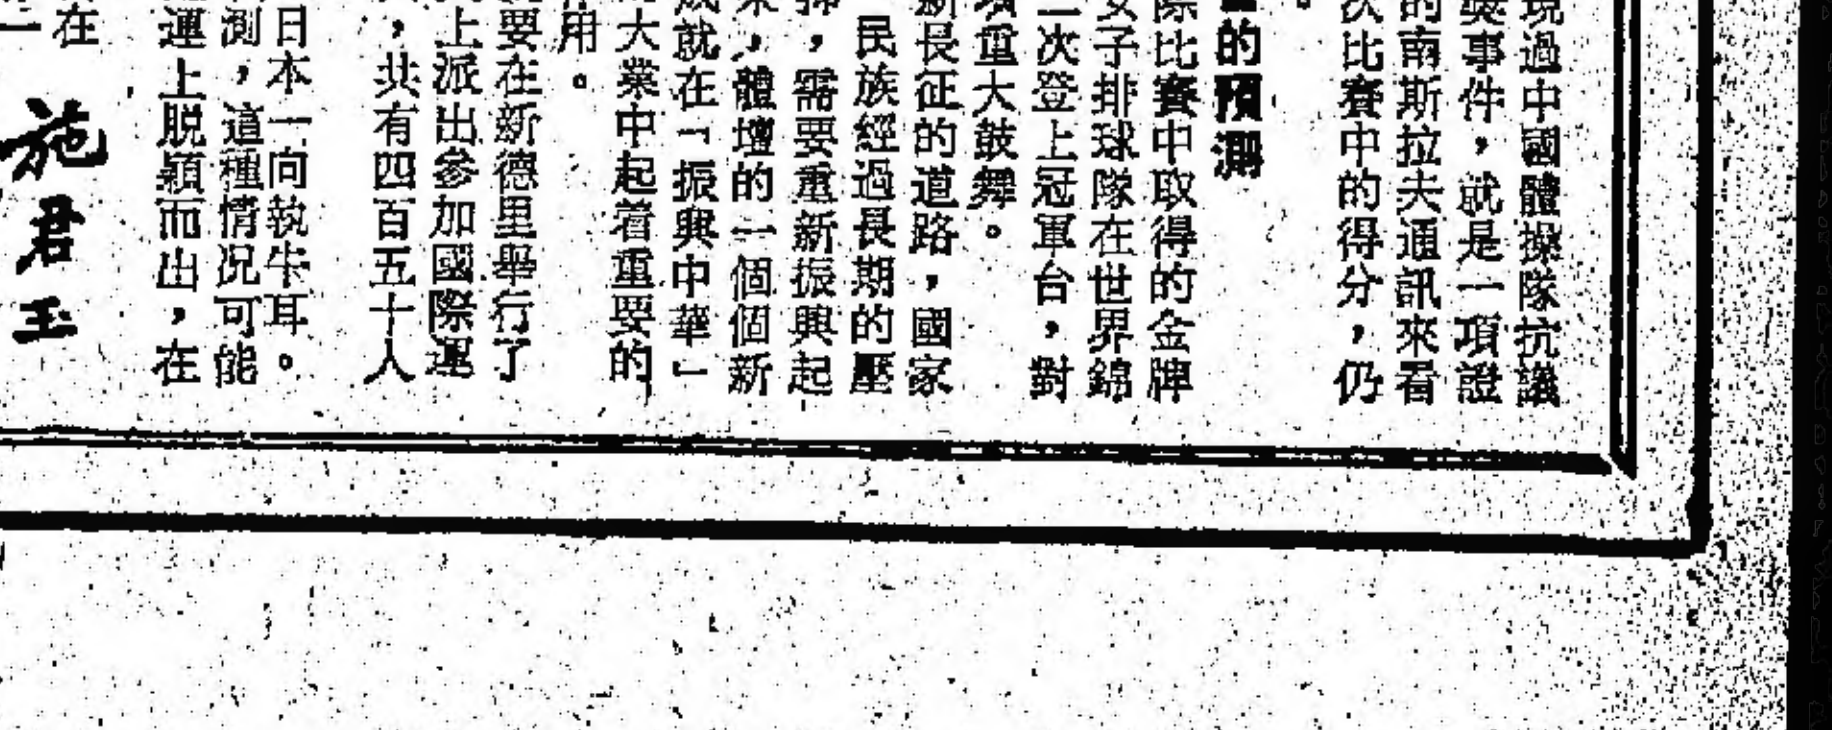 現過中國體操隊抗議
獎事件，就是一項證
的南斯拉夫通訊來看
次比賽中的得分，仍
。
的預測
際比賽中取得的金牌
女子排球隊在世界錦
二次登上冠軍台，對
項重大鼓舞。
新長征的道路，國家
民族經過長期的壓
，需要重新振興起
來，體壇的一個個新
成就在「振興中華」
大業中起着重要的
作用。
要在新德里舉行了
上派出參加國際運
，共有四百五十人
日本一向執牛耳。
測，這種情况可能
運上脱穎而出，在
在
施君玉